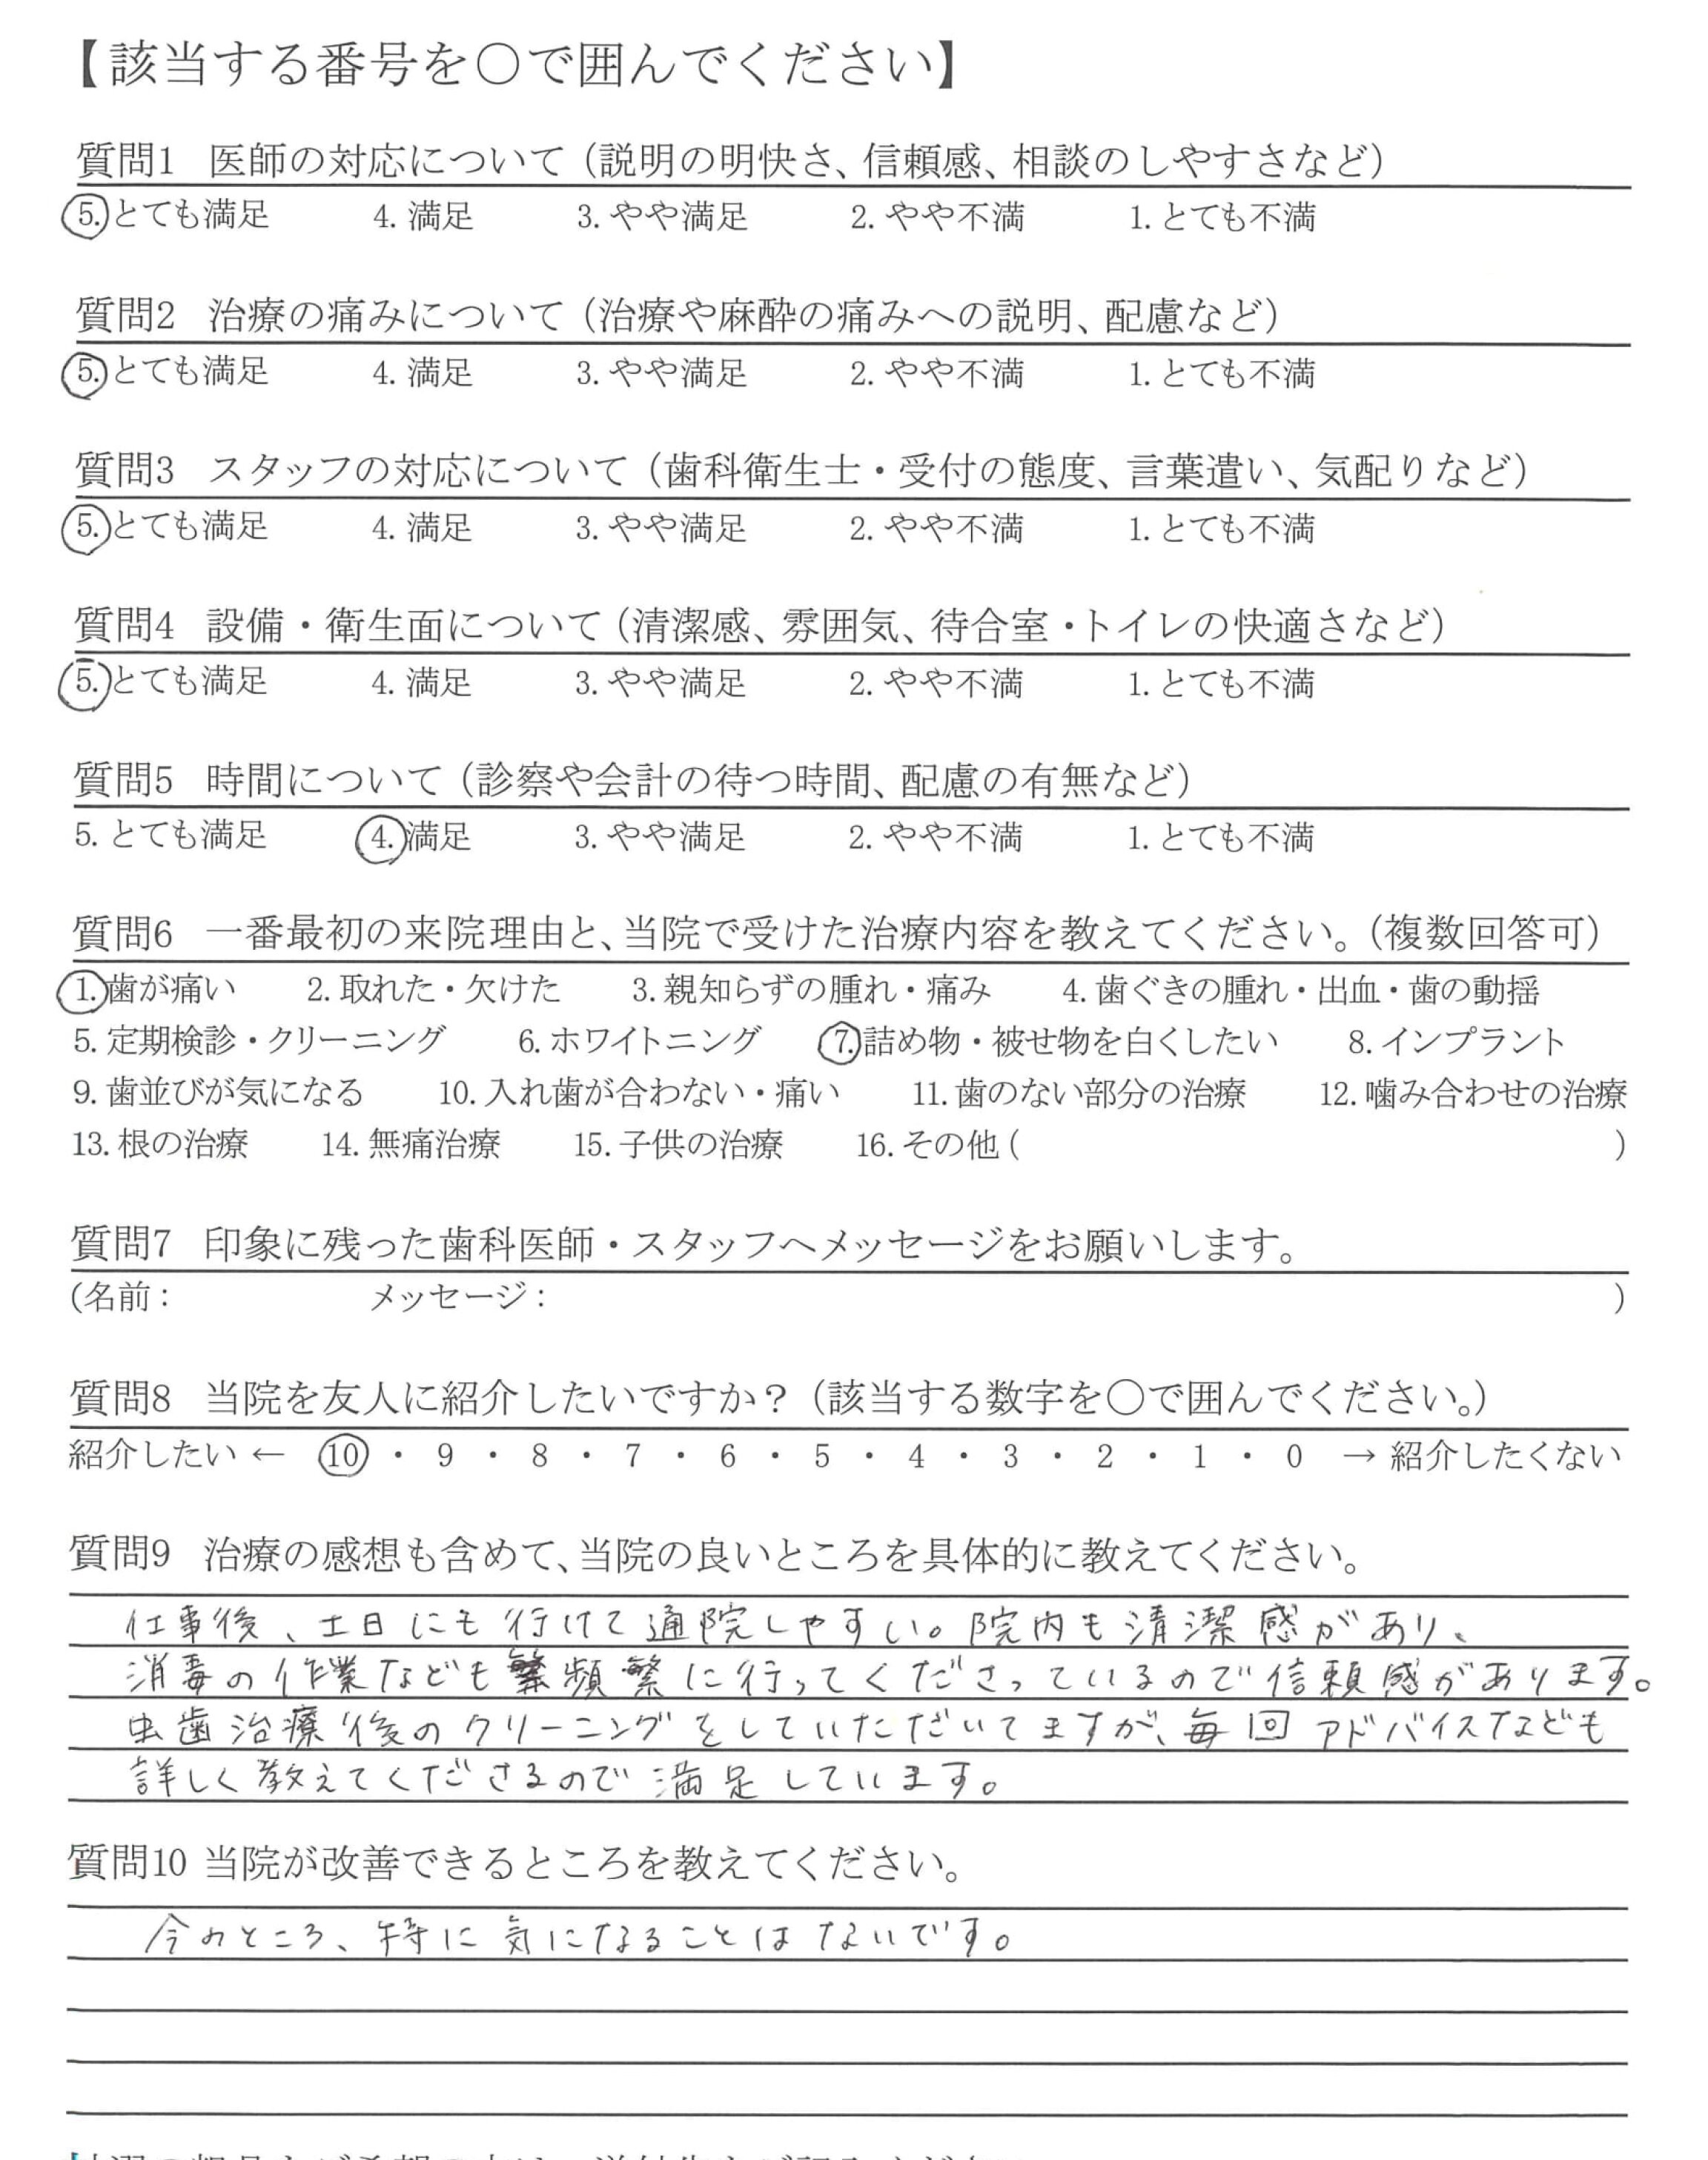 【該当する番号を〇で囲んでください】
質問1 医師の対応について（説明の明快さ、信頼感、相談のしやすさなど）
5. とても満足 4. 満足 3. やや満足 2. やや不満 1. とても不満
質問2 治療の痛みについて（治療や麻酔の痛みへの説明、配慮など）
5. とても満足 4. 満足 3. やや満足 2. やや不満 1. とても不満
質問3 スタッフの対応について（歯科衛生士・受付の態度、言葉遣い、気配りなど）
5. とても満足 4. 満足 3. やや満足 2. やや不満 1. とても不満
質問4 設備・衛生面について（清潔感、雰囲気、待合室・トイレの快適さなど）
5. とても満足 4. 満足 3. やや満足 2. やや不満 1. とても不満
質問5 時間について（診察や会計の待つ時間、配慮の有無など）
5. とても満足 4. 満足 3. やや満足 2. やや不満 1. とても不満
質問6 一番最初の来院理由と、当院で受けた治療内容を教えてください。（複数回答可）
1. 歯が痛い 2. 取れた・欠けた 3. 親知らずの腫れ・痛み 4. 歯ぐきの腫れ・出血・歯の動揺
5. 定期検診・クリーニング 6. ホワイトニング 7. 詰め物・被せ物を白くしたい 8. インプラント
9. 歯並びが気になる 10. 入れ歯が合わない・痛い 11. 歯のない部分の治療 12. 噛み合わせの治療
13. 根の治療 14. 無痛治療 15. 子供の治療 16. その他（ ）
質問7 印象に残った歯科医師・スタッフへメッセージをお願いします。
（名前： メッセージ： ）
質問8 当院を友人に紹介したいですか？（該当する数字を〇で囲んでください。）
紹介したい ← 10 ・ 9 ・ 8 ・ 7 ・ 6 ・ 5 ・ 4 ・ 3 ・ 2 ・ 1 ・ 0 → 紹介したくない
質問9 治療の感想も含めて、当院の良いところを具体的に教えてください。
仕事後、土日にも行けて通院しやすい。院内も清潔感があり、
消毒の作業なども頻繁に行ってくださっているので信頼感があります。
虫歯治療後のクリーニングをしていただいてますが、毎回アドバイスなども
詳しく教えてくださるので満足しています。
質問10 当院が改善できるところを教えてください。
今のところ、特に気になることはないです。